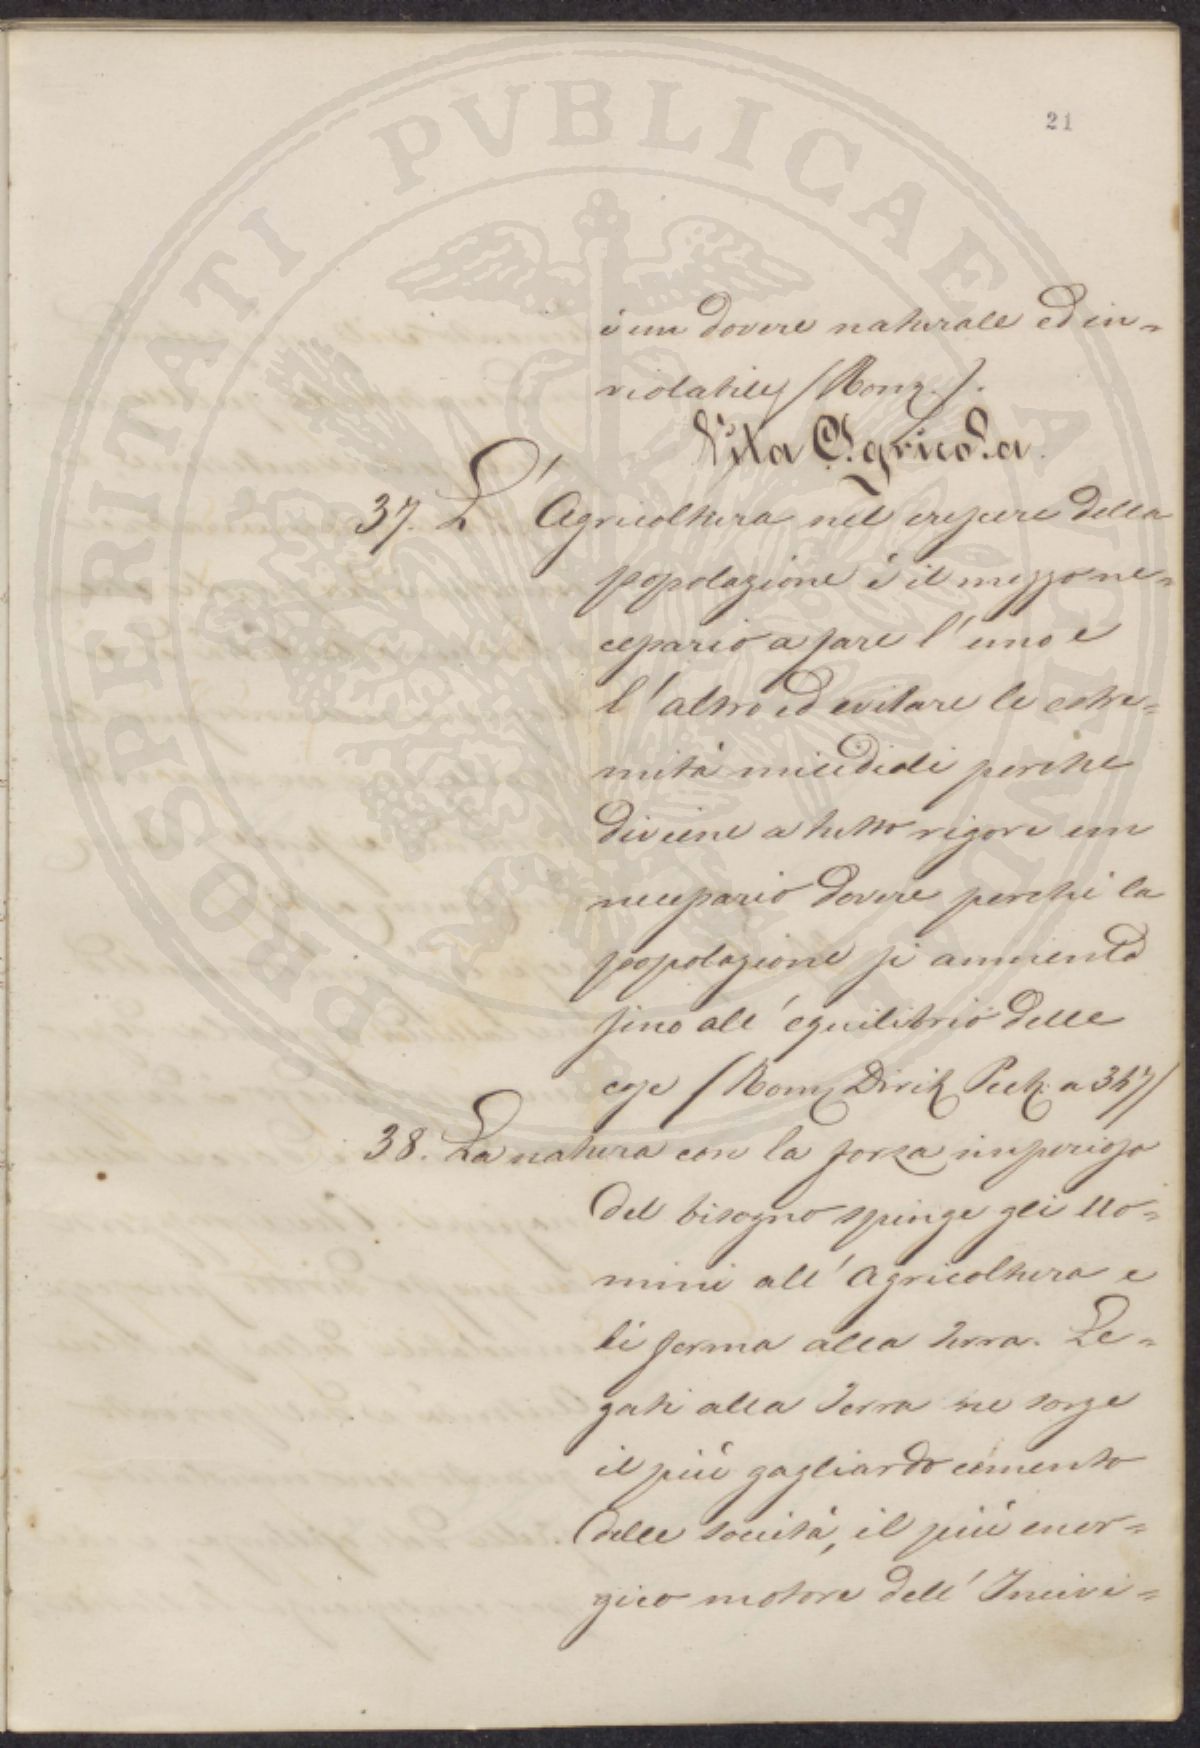 21
è un dovere naturale ed in=
violabile (Romg.).
Vita Agricola.
37. L' Agricoltura nel crescere della
popolazione è il mezzo ne=
cessario a fare l'uno e
l'altro ed evitare le estre=
mità micidiali perche
diviene a tutto rigore un
necessario dovere perchè la
popolazione si aumenta
fino all'equilibrio delle
cose (Romg Dirit Pub: a 347)
38. La natura con la forza imperiosa
del bisogno spinge gli Uo=
mini all'Agricoltura e
li ferma alla terra. Le=
gati alla Terra ne sorge
il più gagliardo cemento
delle società, il più ener=
gico motore dell'Incivi=
PROSPERITATI PVBLICAE AVGENDAE